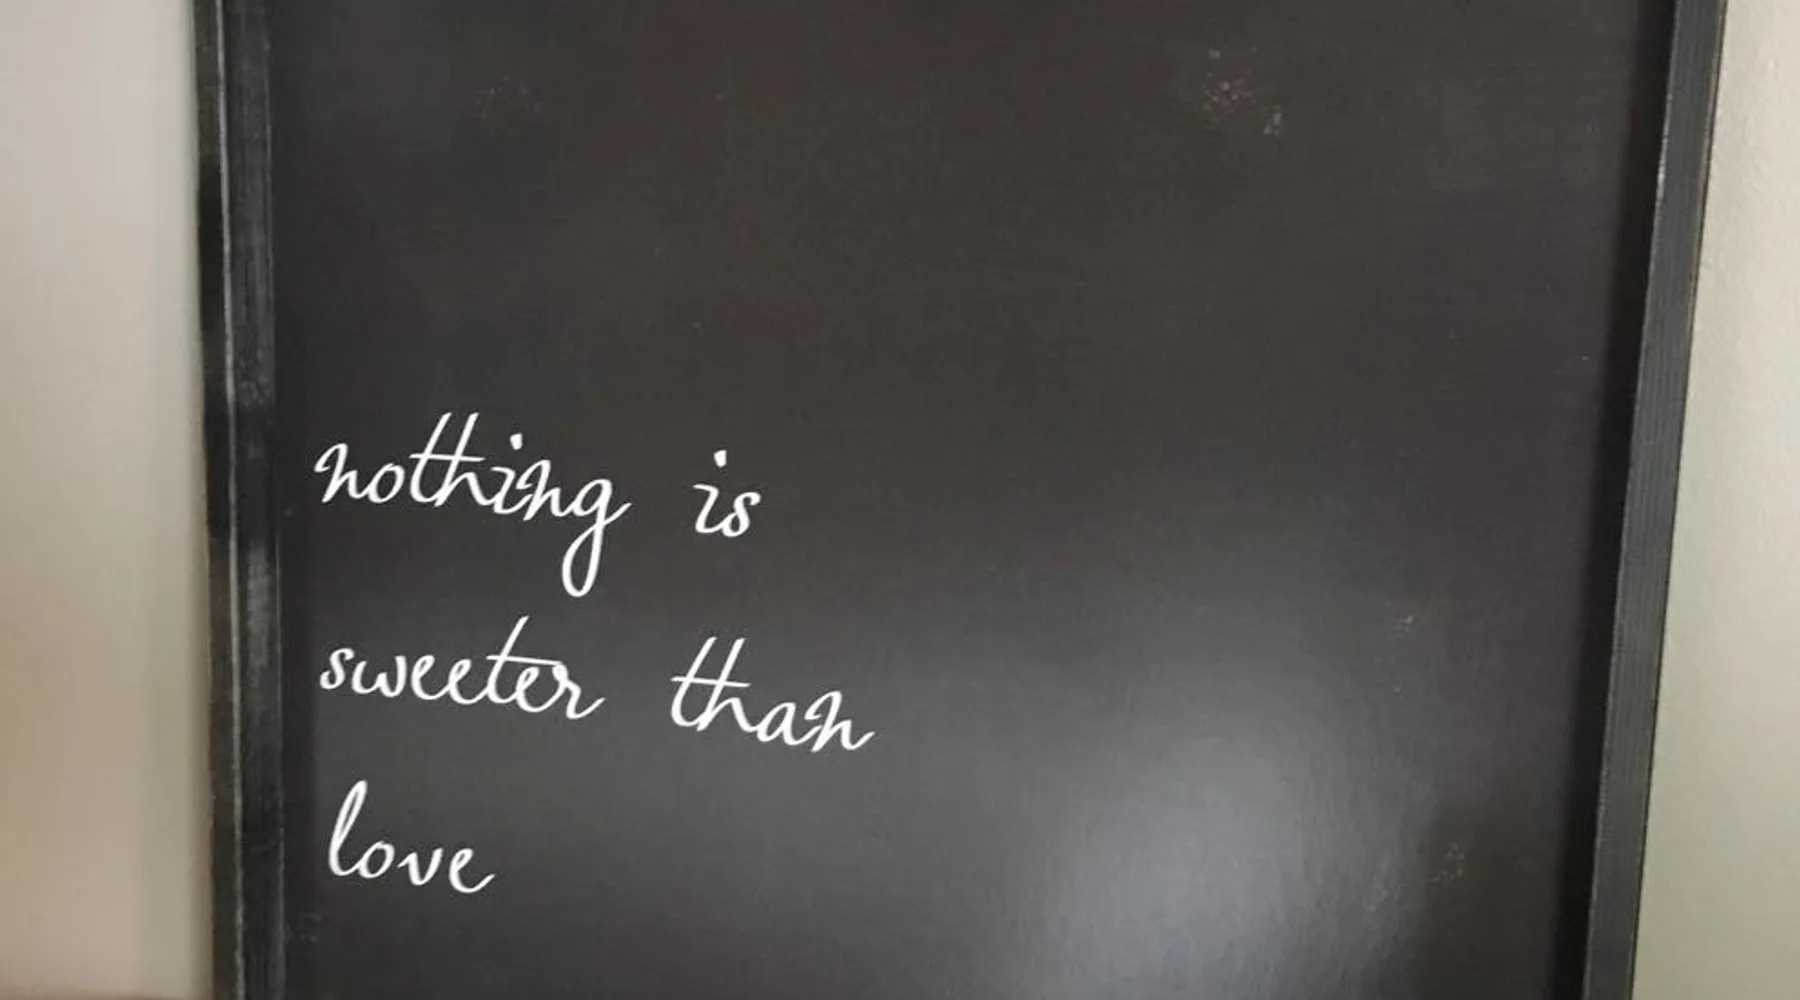 nothing is
sweeter than
love